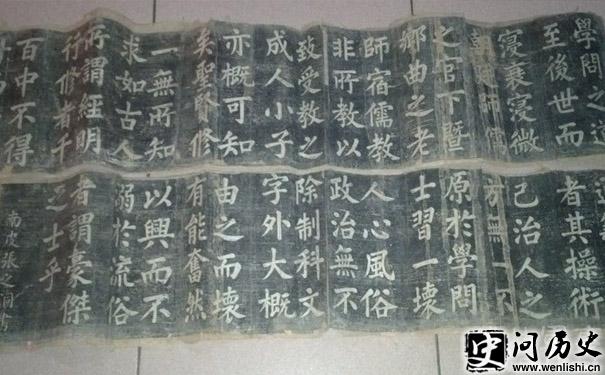 學問之道
至後世而
寖衰寖微
朝廷師儒
之官下暨
鄉曲之老
師宿儒教
非所教以
致受教之
成人小子
亦概可知
矣聖賢修
一無所知
求如古人
所謂經明
行修者千
百中不得
者其操術
己治人之
方無一不
原於學問
士習一壞
人心風俗
政治無不
除制科文
字外大概
由之而壞
有能奮然
以興而不
溺於流俗
者謂豪傑
之士乎
南皮張之洞書
史 问历史
www.wenlishi.cn